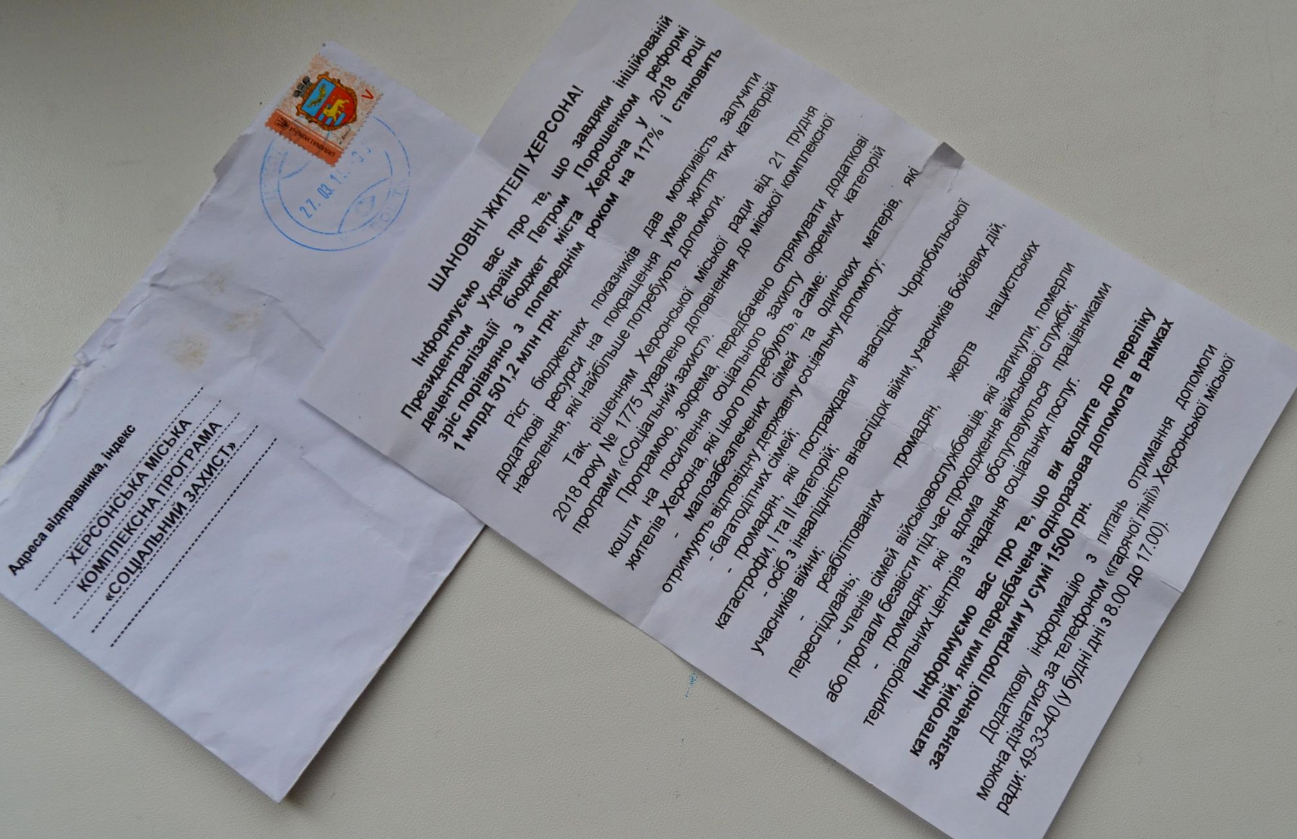 ШАНОВНІ ЖИТЕЛІ ХЕРСОНА!
Інформуємо вас про те, що завдяки ініційованій
Президентом України Петром Порошенком реформі
децентралізації бюджет міста Херсона у 2018 році
зріс порівняно з попереднім роком на 117% і становить
1 млрд 501,2 млн грн.
Ріст бюджетних показників дав можливість залучити
додаткові ресурси на покращення умов життя тих категорій
населення, які найбільше потребують допомоги.
Так, рішенням Херсонської міської ради від 21 грудня
2018 року № 1775 ухвалено доповнення до міської комплексної
програми «Соціальний захист».
Програмою, зокрема, передбачено спрямувати додаткові
кошти на посилення соціального захисту окремих категорій
жителів Херсона, які цього потребують, а саме:
- малозабезпечених сімей та одиноких матерів, які
отримують відповідну державну соціальну допомогу;
- багатодітних сімей;
- громадян, які постраждали внаслідок Чорнобильської
катастрофи, I та II категорій;
- осіб з інвалідністю внаслідок війни, учасників бойових дій,
учасників війни;
- реабілітованих громадян, жертв нацистських
переслідувань;
- членів сімей військовослужбовців, які загинули, померли
або пропали безвісти під час проходження військової служби;
- громадян, які вдома обслуговуються працівниками
територіальних центрів з надання соціальних послуг.
Інформуємо вас про те, що ви входите до переліку
категорій, яким передбачена одноразова допомога в рамках
зазначеної програми у сумі 1500 грн.
Додаткову інформацію з питань отримання допомоги
можна дізнатися за телефоном «гарячої лінії» Херсонської міської
ради: 49-33-40 (у будні дні з 8.00 до 17.00).
Адреса відправника, індекс
ХЕРСОНСЬКА МІСЬКА
КОМПЛЕКСНА ПРОГРАМА
«СОЦІАЛЬНИЙ ЗАХИСТ»
V
27. 03. 1